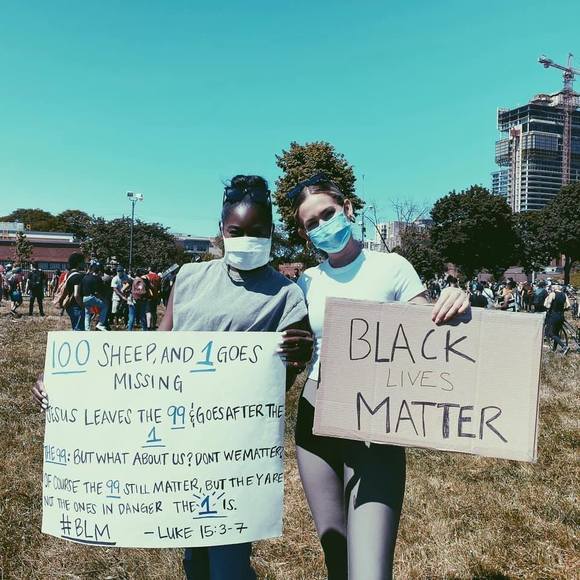 100 SHEEP, AND 1 GOES
MISSING
JESUS LEAVES THE 99 & GOES AFTER THE
1
THE 99: BUT WHAT ABOUT US? DONT WE MATTER?
OF COURSE THE 99 STILL MATTER, BUT THEY ARE
NOT THE ONES IN DANGER THE 1 IS.
#BLM – LUKE 15:3-7
BLACK
LIVES
MATTER